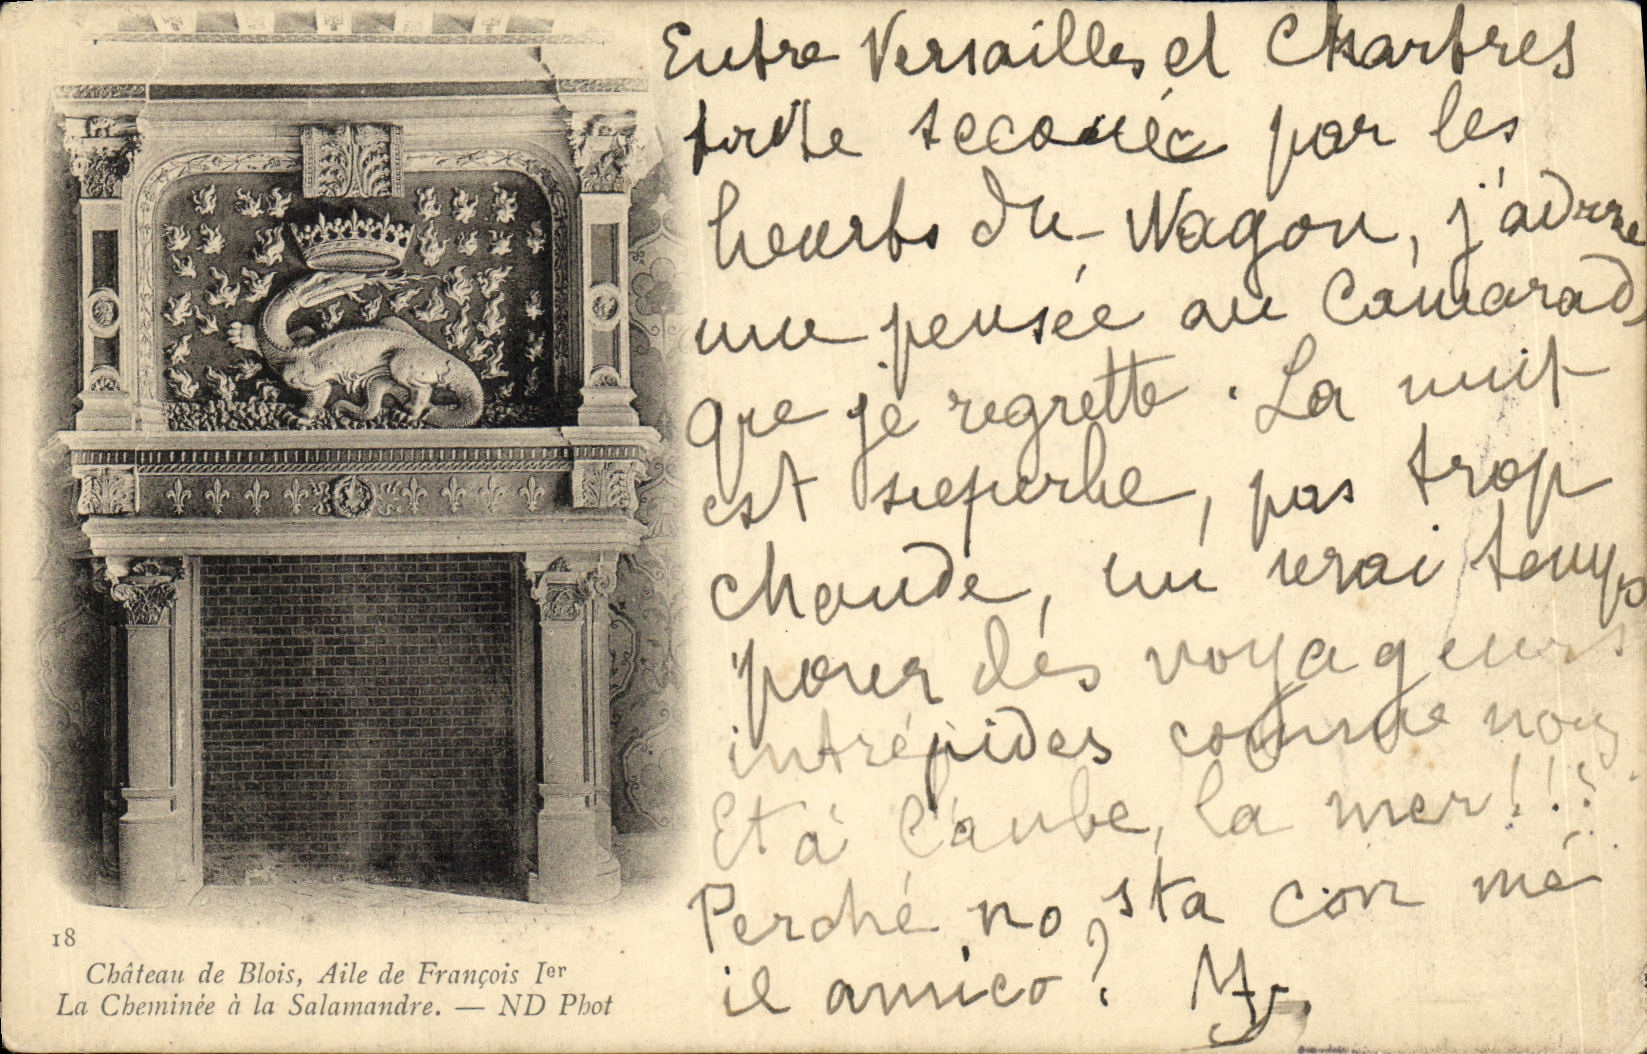 Entre Versailles et Chartres
toute secouée par les
heurts du Wagon, j'adresse
une pensée au Camarade
que je regrette. La nuit
est superbe, pas trop
chaude, un vrai temps
pour des voyageurs
intrépides comme nous
Et à l'aube, la mer!!!
Perché no sta con me
il amico?
18
Château de Blois, Aile de François Ier
La Cheminée à la Salamandre. — ND Phot